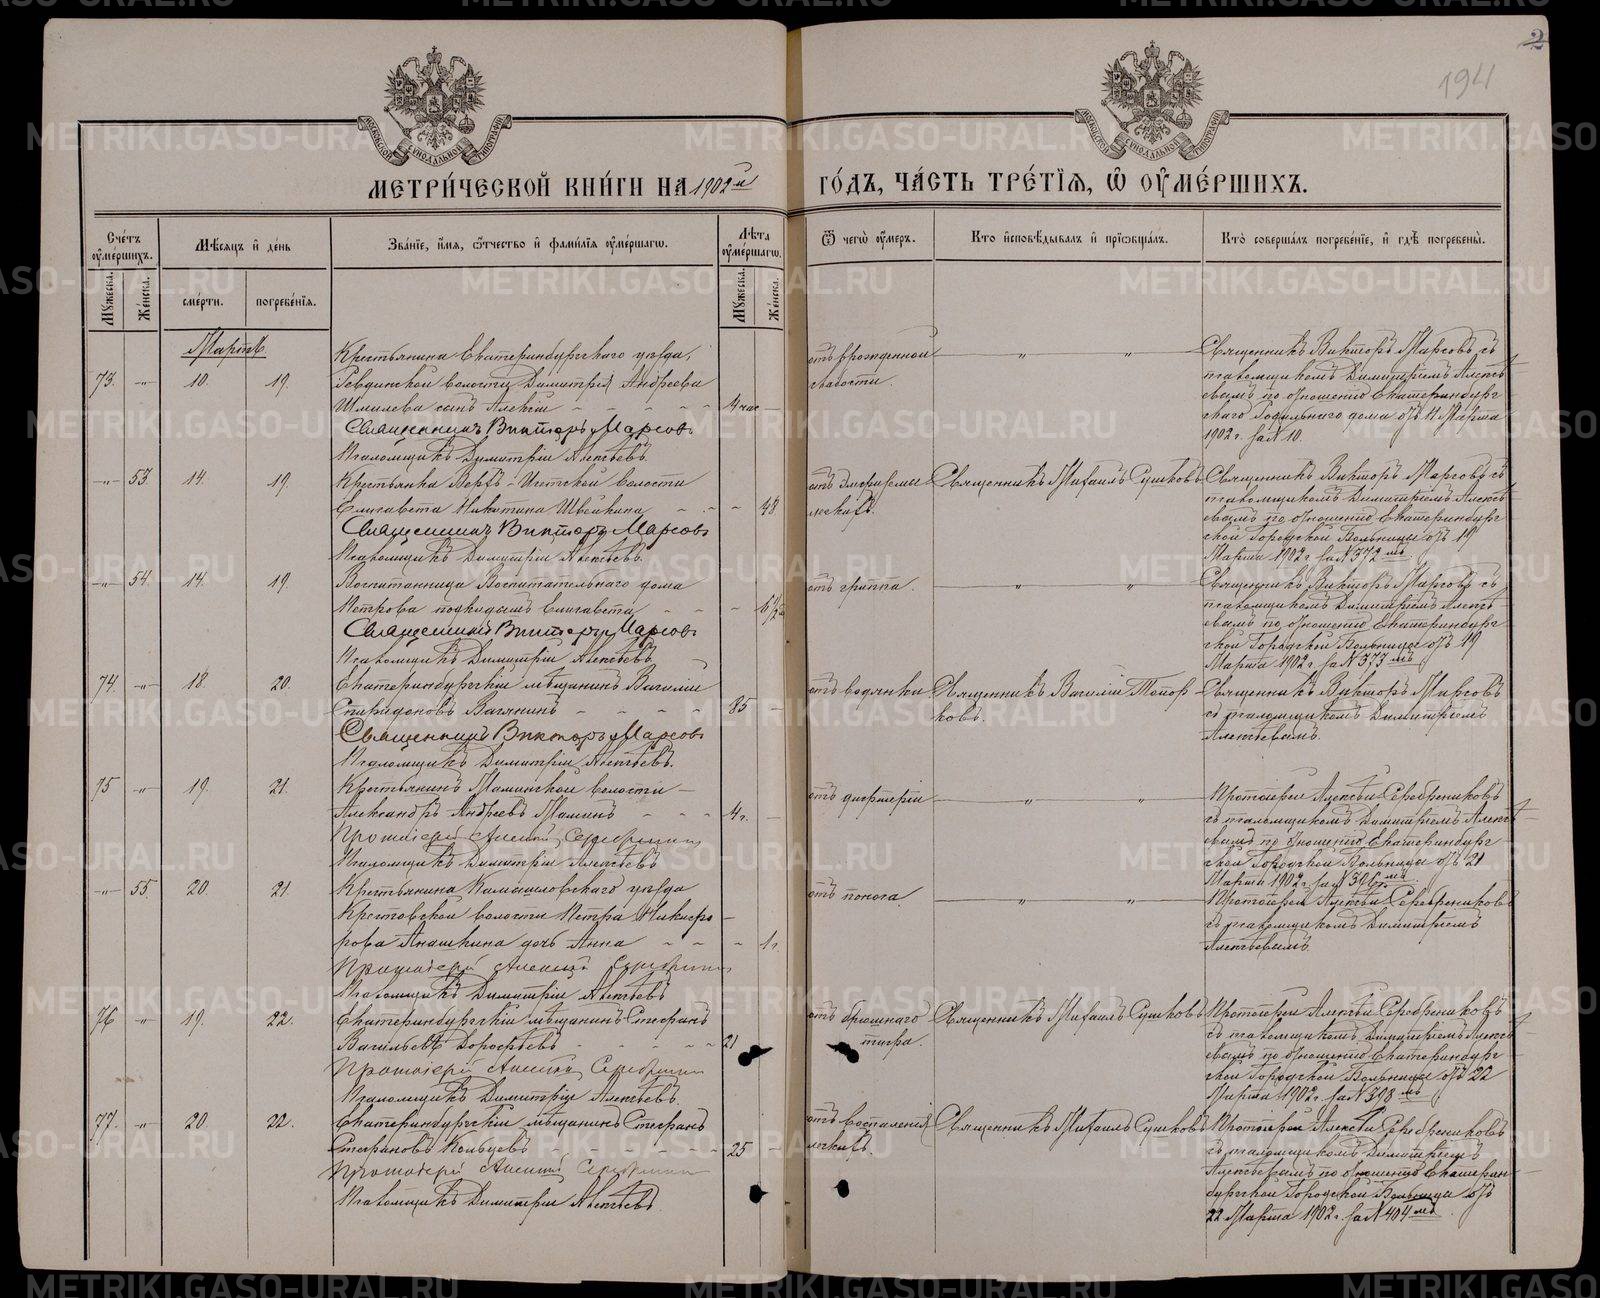 2
194
МОСКОВСКОЙ СѴНОДАЛЬНОЙ ТИПОГРАФІИ
МОСКОВСКОЙ СѴНОДАЛЬНОЙ ТИПОГРАФІИ
МЕТРИ́ЧЕСКОЙ КНИ́ГИ НА 1902 й ГО́ДЪ, ЧА́СТЬ ТРЕ́ТІѦ, Ѡ҆ ОУ҆МЕ́РШИХЪ.
Сче́тъ оу҆ме́ршихъ.
Мѣ́сѧцъ и҆ де́нь
Зва́нїе, и҆́мѧ, ѻ҆́тчество и҆ фами́лїѧ оу҆ме́ршагѡ.
Лѣ́та оу҆ме́ршагѡ.
Ѿ чегѡ̀ оу҆́меръ.
Кто̀ и҆сповѣ́дывалъ и҆ прїѡбща́лъ.
Кто̀ соверша́лъ погребе́нїе, и҆ гдѣ̀ погребены̀.
Мꙋ́жеска. Же́нска.
сме́рти. погребе́нїѧ.
Мꙋ́жеска. Же́нска.
Мартъ
Крестьянина Екатеринбургскаго уѣзда,
73. -„- 10. 19. Ревдинской волости Димитрія Андреева
Шмелева сынъ Алексій - - - - - 4 час -
Священникъ Викторъ Марсовъ
Псаломщикъ Димитрій Алексѣевъ.
отъ врожденной
слабости.
Священникъ Викторъ Марсовъ съ
псаломщикомъ Димитріемъ Алексѣ-
евымъ по отношенію Екатеринбург
скаго Родильнаго дома отъ 11 Марта
1902 г. за N 10.
-„- 53. 14. 19. Крестьянка Верхъ-Исетской волости
Елизавета Никитина Швейкина - . - - 48
Священникъ Викторъ Марсовъ
Псаломщикъ Димитрій Алексѣевъ.
отъ эмфиземы
легкихъ.
Священникъ Михаилъ Сушковъ
Священникъ Викторъ Марсовъ съ
псаломщикомъ Димитріемъ Алексѣ-
евымъ по отношенію Екатеринбург
ской Городской Больницы отъ 19
Марта 1902 г. за N 372 мъ
-„- 54. 14. 19. Воспитанница Воспитательнаго дома
Петрова подкидышъ Елизавета - - -
Священникъ Викторъ Марсовъ
Псаломщикъ Димитрій Алексѣевъ
отъ гриппа.
Священникъ Викторъ Марсовъ съ
псаломщикомъ Димитріемъ Алексѣ-
евымъ по отношенію Екатеринбург
ской Городской Больницы отъ 19
Марта 1902 г. за N 373 мъ
74. -„- 18. 20. Екатеринбургскій мѣщанинъ Василій
Спиридоновъ Вагянинъ - - - - - 85 -
Священникъ Викторъ Марсовъ
Псаломщикъ Димитрій Алексѣевъ.
отъ водянки
Священникъ Василій Топор
ковъ.
Священникъ Викторъ Марсовъ
съ псаломщикомъ Димитріемъ
Алексѣевымъ.
75 -„- 19. 21. Крестьянинъ Маминской волости -
Александръ Андреевъ Маминъ - - - 4 г. -
Протоіерей Алексій Серебрен
Псаломщикъ Димитрій Алексѣевъ
отъ дифтеріи
Протоіерей Алексѣй Серебрениковъ
съ псаломщикомъ Димитріемъ Алексѣ
евымъ по отношенію Екатеринбург
ской Городской Больницы отъ 21
Марта 1902 г. за N 396 мъ
-„- 55. 20. 21. Крестьянина Камышловскаго уѣзда
Крестовской волости Петра Никифо
рова Анашкина дочь Анна - - - 1 г.
Протоіерей Алексій Серебрен
Псаломщикъ Димитрій Алексѣевъ
отъ поноса.
Протоіерей Алексѣй Серебрениковъ
съ псаломщикомъ Димитріемъ
Алексѣевымъ.
76 -„- 19. 22. Екатеринбургскій мѣщанинъ Стефанъ
Васильевъ Дорофѣевъ - - - - - 21
Протоіерей Алексій Серебрен
Псаломщикъ Димитрій Алексѣевъ.
отъ брюшнаго
тифа.
Священникъ Михаилъ Сушковъ
Протоіерей Алексѣй Серебрениковъ
съ псаломщикомъ Димитріемъ Алексѣ
евымъ по отношенію Екатеринбург
ской Городской Больницы отъ 22
Марта 1902 г. за N 398 мъ
77. -„- 20. 22. Екатеринбургскій мѣщанинъ Стефанъ
Стефановъ Кольцевъ - - - - - - 25 -
Протоіерей Алексій Серебрен
Псаломщикъ Димитрій Алексѣевъ.
отъ воспаленія
легкихъ.
Священникъ Михаилъ Сушковъ
Протоіерей Алексѣй Серебрениковъ
съ псаломщикомъ Димитріемъ
Алексѣевымъ по отношенію Екатерин-
бургской Городской Больницы отъ
22 Марта 1902 г. за N 404 мъ
METRIKI.GASO-URAL.RU